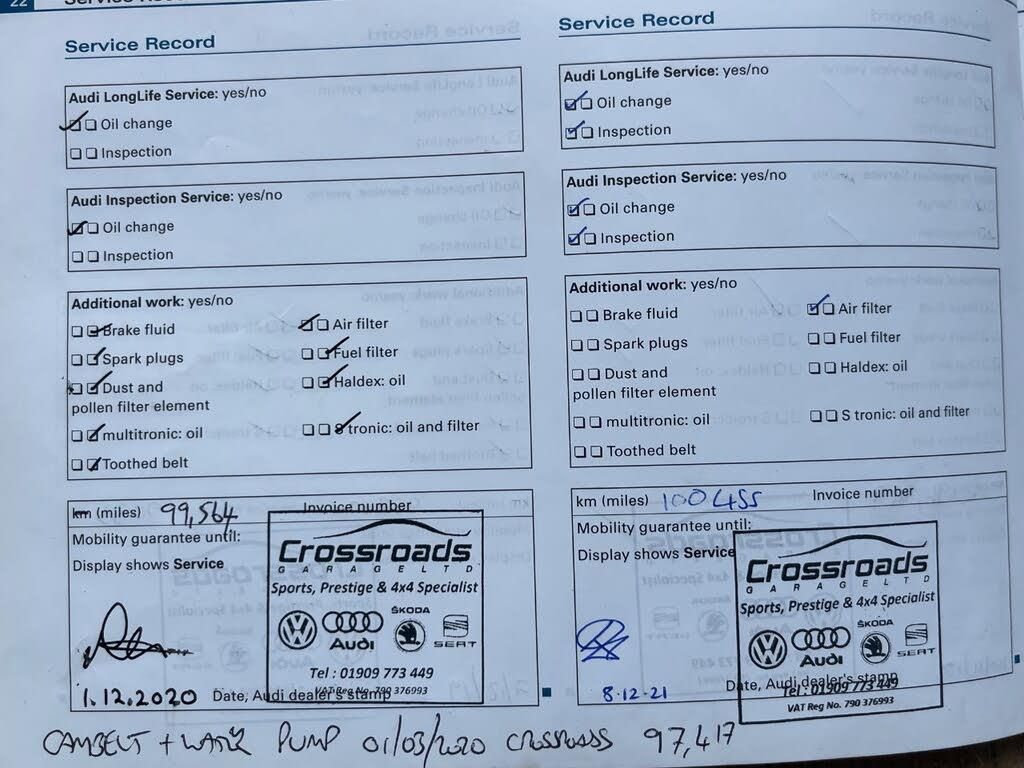 22 Service Rec
Service Record
Audi LongLife Service: yes/no
Oil change
Inspection
Audi Inspection Service: yes/no
Oil change
Inspection
Additional work: yes/no
Brake fluid
Air filter
Spark plugs
Fuel filter
Dust and
pollen filter element
Haldex: oil
multitronic: oil
S tronic: oil and filter
Toothed belt
km (miles) 99,564 Invoice number
Mobility guarantee until:
Display shows Service
Crossroads
GARAGE LTD
Sports, Prestige & 4x4 Specialist
Audi
ŠKODA
SEAT
Tel : 01909 773 449
VAT Reg No. 790 376993
1.12.2020 Date, Audi dealer's stamp
Service Record
Audi LongLife Service: yes/no
Oil change
Inspection
Audi Inspection Service: yes/no
Oil change
Inspection
Additional work: yes/no
Brake fluid
Air filter
Spark plugs
Fuel filter
Dust and
pollen filter element
Haldex: oil
multitronic: oil
S tronic: oil and filter
Toothed belt
km (miles) 100455 Invoice number
Mobility guarantee until:
Display shows Service
Crossroads
GARAGE LTD
Sports, Prestige & 4x4 Specialist
Audi
ŠKODA
SEAT
Tel : 01909 773 449
VAT Reg No. 790 376993
8-12-21 Date, Audi dealer's stamp
CAMBELT + WATER PUMP 01/03/2020 CROSSROADS 97,417